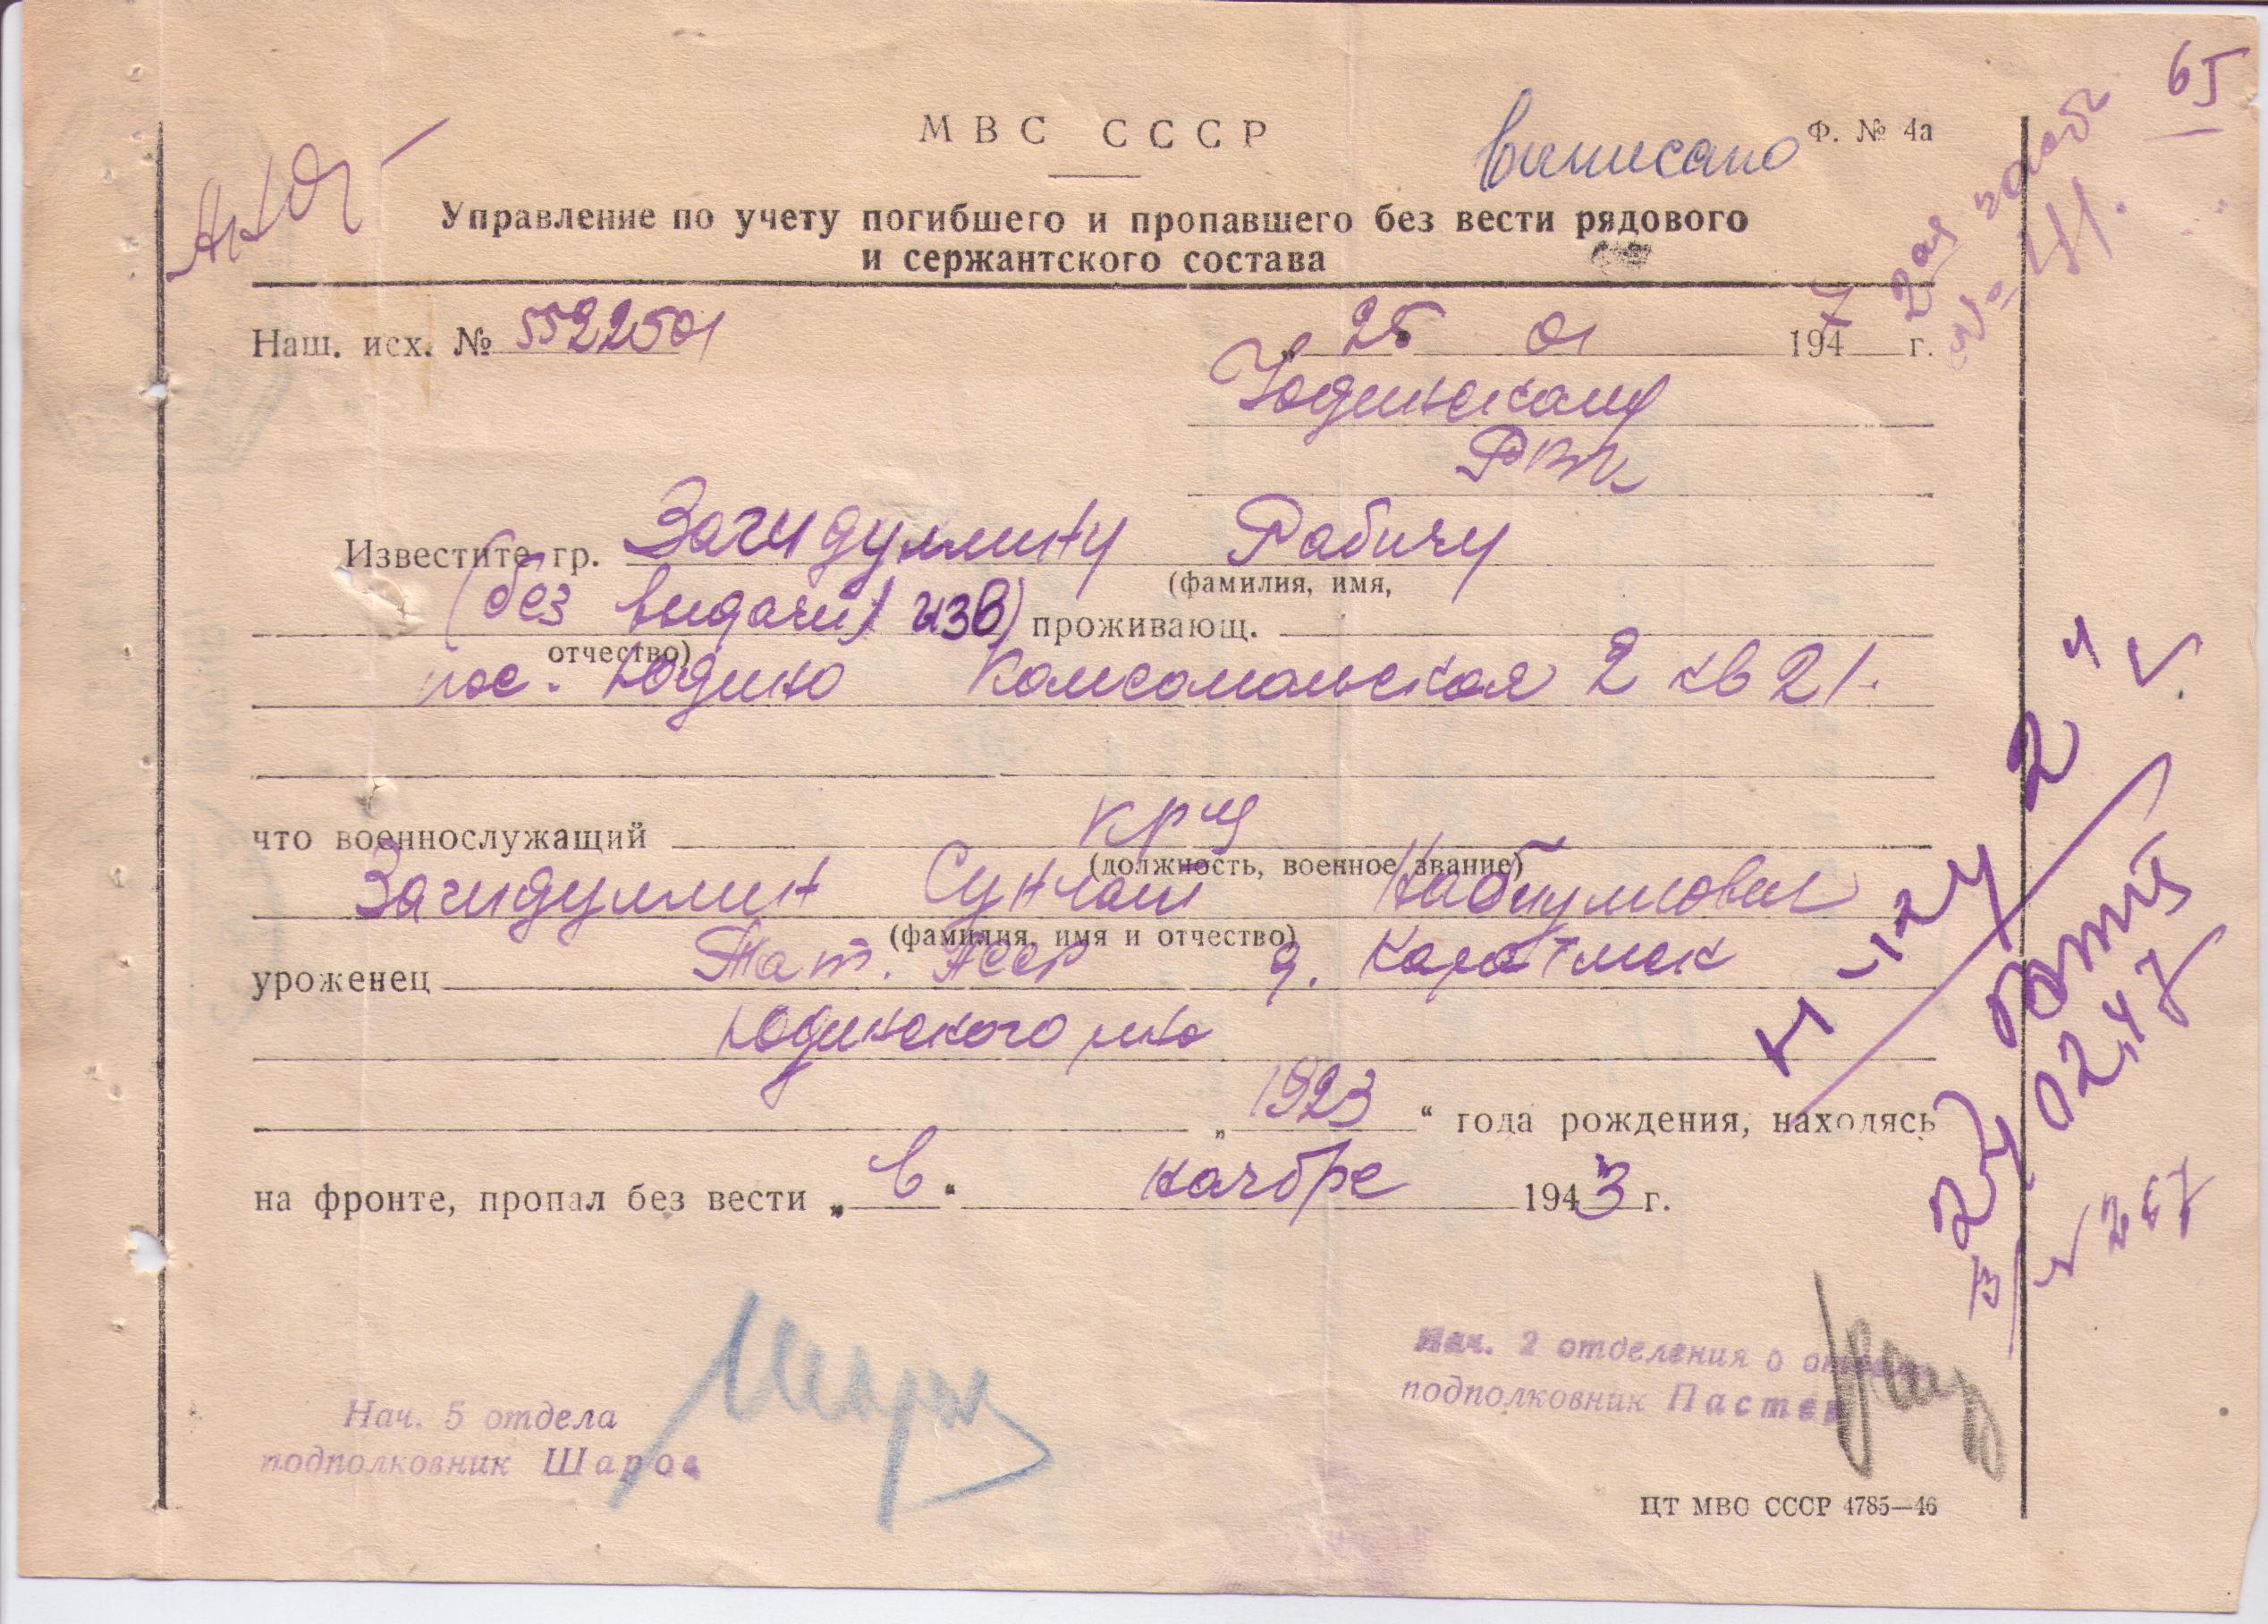 65
МВС СССР
Ф. № 4а
выписано
Управление по учету погибшего и пропавшего без вести рядового
и сержантского состава
2ая
№ 41.
Наш. исх. № 5522501
„25 01 1947 г.
Юдинскому
РВК
Известите гр. Загидуллину Рабигу
(фамилия, имя,
(без выдачи изв) проживающ.
отчество)
пос. Юдино Комсомольская 2 кв 21.
что военнослужащий кр-ц
(должность, военное звание)
Загидуллин Сунгат
(фамилия, имя и отчество)
уроженец Тат. АССР д.
Юдинского р-на
„1923“ года рождения, находясь
на фронте, пропал без вести „в“ ноябре 1943 г.
24 02.47
№ 267
Нач. 2 отделения 5
подполковник
Нач. 5 отдела
подполковник Шаров
ЦТ МВС СССР 4785—46